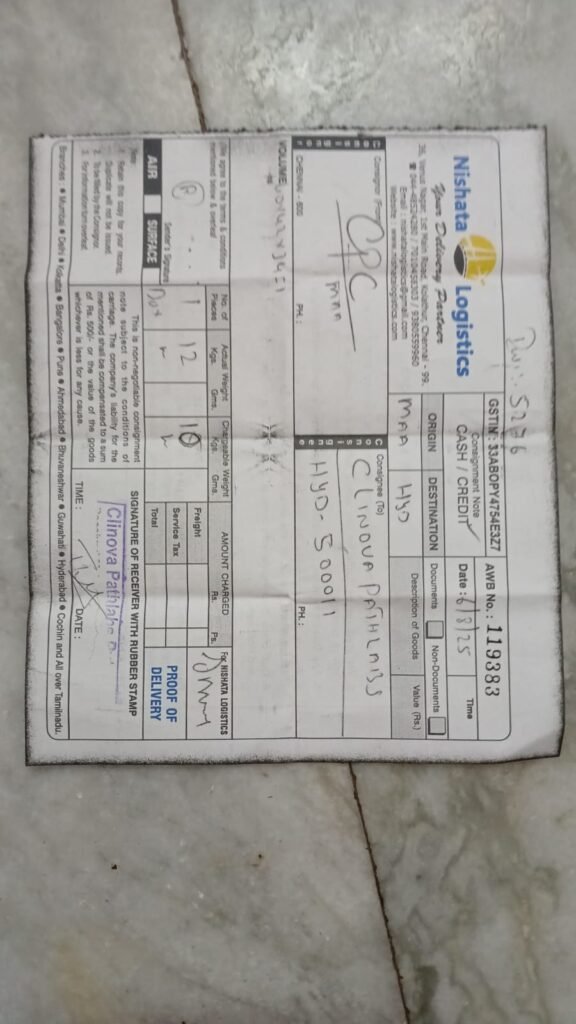 Nishata Logistics
Your Delivery Partner
26, Vanuji Nagar, 1st Main Road, Kolathur, Chennai - 99.
Email : nishatalogistics@gmail.com
Website : www.nishatalogistics.com
GSTIN : 33ABOPY4754E3Z7
Consignment Note
CASH / CREDIT
AWB No. : 119383
Date : 6/8/25
Time
ORIGIN
DESTINATION
MAA
HYD
Documents
Non-Documents
Description of Goods
Value (Rs.)
Consignor (From)
CPC
MAA
CHENNAI - 600
PH. :
Consignee (To)
CLINOVA PATHLABS
HYD - 500011
PH. :
VOLUME
We agree to the terms & conditions
mentioned below & overleaf
Sender's Signature
No. of Pieces
1
Actual Weight
Kgs. Gms.
12
Chargeable Weight
Kgs. Gms.
10
AMOUNT CHARGED
Rs. Ps.
Freight
Service Tax
Total
For NISHATA LOGISTICS
PROOF OF DELIVERY
AIR
SURFACE
Box
Note:
1. Retain this copy for your records.
Duplicate will not be issued
2. To be filled by the Consignor.
3. For information turn overleaf.
This is non-negotiable consignment
note subject to the conditions of
carriage. The company's liability for the
mentioned shall be compensated to a sum
of Rs. 500/- or the value of the goods
whichever is less for any cause.
SIGNATURE OF RECEIVER WITH RUBBER STAMP
Clinova Pathlabs
TIME :
DATE :
Branches : Mumbai Delhi Kolkatta Bangalore Pune Ahmedabad Bhuvaneshwar Guwahati Hyderabad Cochin and All over Tamilnadu.